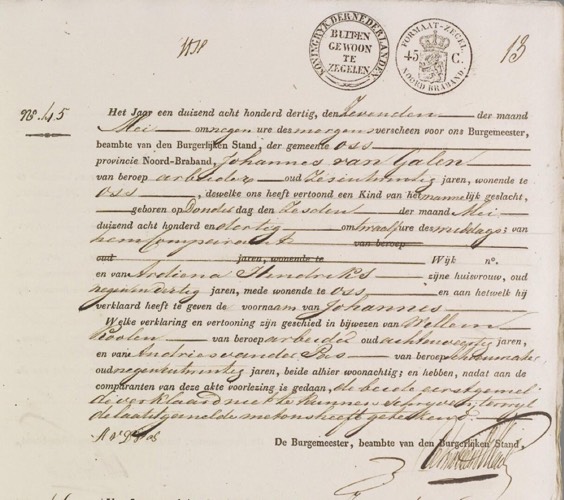 KONINGRYK DER NEDERLANDEN
BUITEN
GEWOON
TE
ZEGELEN
FORMAAT-ZEGEL
45 C.
NOORD BRABAND
13
No. 45
Het Jaar een duizend acht honderd dertig, den Zevenden der maand
Mei om negen ure des morgens verscheen voor ons Burgemeester,
beambte van den Burgerlijken Stand, der gemeente Oss
provincie Noord-Braband, Johannes van Galen
van beroep arbeider oud Zesentwintig jaren, wonende te
Oss, dewelke ons heeft vertoond een Kind van het mannelijk geslacht,
geboren op Donderdag den Zesden der maand Mei
duizend acht honderd en dertig om twaalf ure des middags; van
hem Comparant van beroep
oud jaren, wonende te Wijk no.
en van Ardiena Hendriks zijne huisvrouw, oud
negenendertig jaren, mede wonende te Oss en aan hetwelk hij
verklaard heeft te geven de voornaam van Johannes
Welke verklaring en vertooning zijn geschied in bijwezen van Willem
van beroep arbeider oud jaren,
en van Andries van der Bos van beroep
oud negenentwintig jaren, beide alhier woonachtig; en hebben, nadat aan de
comparanten van deze akte voorlezing is gedaan, de beide eerstgemel
de verklaard niet te kunnen schryven, terwyl
de laatstgemelde met ons heeft getekend.
De Burgemeester, beambte van den Burgerlijken Stand,